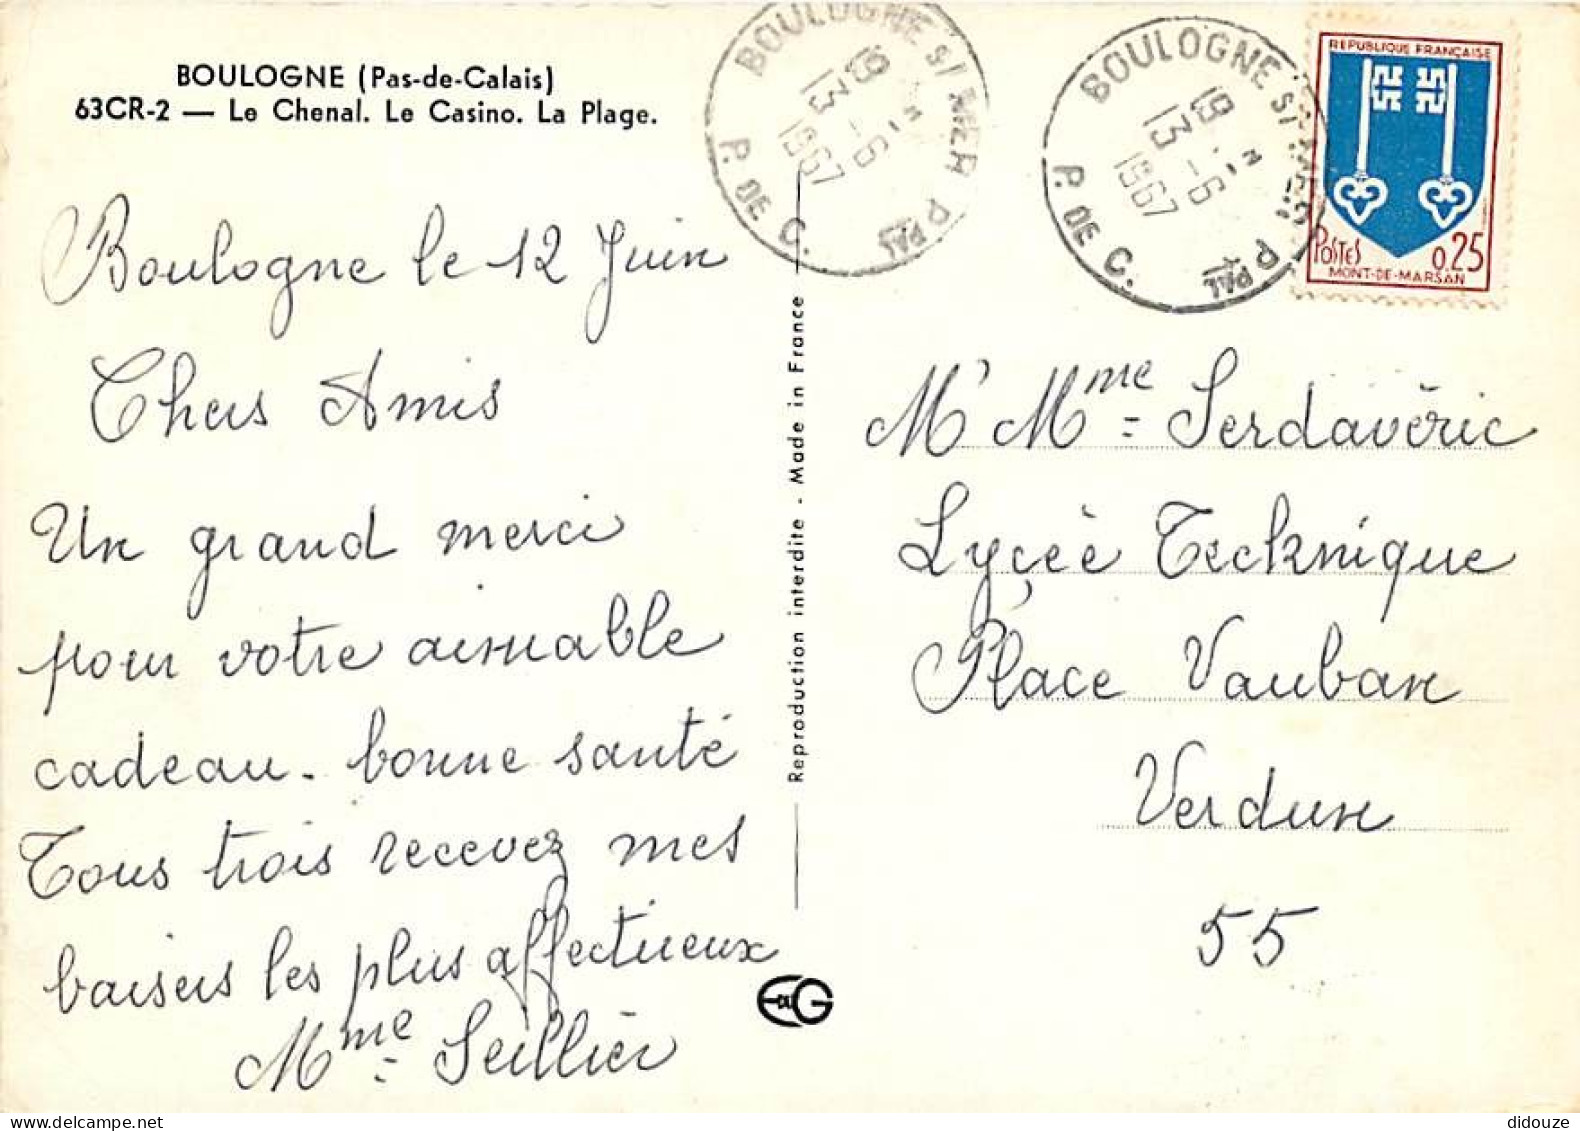 BOULOGNE (Pas-de-Calais)
63CR-2 — Le Chenal. Le Casino. La Plage.
Boulogne le 12 Juin
Chers Amis
Un grand merci
pour votre aimable
cadeau. bonne santé
Tous trois recevez mes
baisers les plus affectueux
Mme Seillier
Reproduction interdite - Made in France
BOULOGNE S/ MER P PAL
P. DE C.
19 H
13 - 6
1967
BOULOGNE S/ MER P PAL
P. DE C.
19 H
13 - 6
1967
REPUBLIQUE FRANÇAISE
POSTES 0,25
MONT-DE-MARSAN
Mr Mme Serdavéric
Lycée Technique
Place Vauban
Verdun
55
didouze